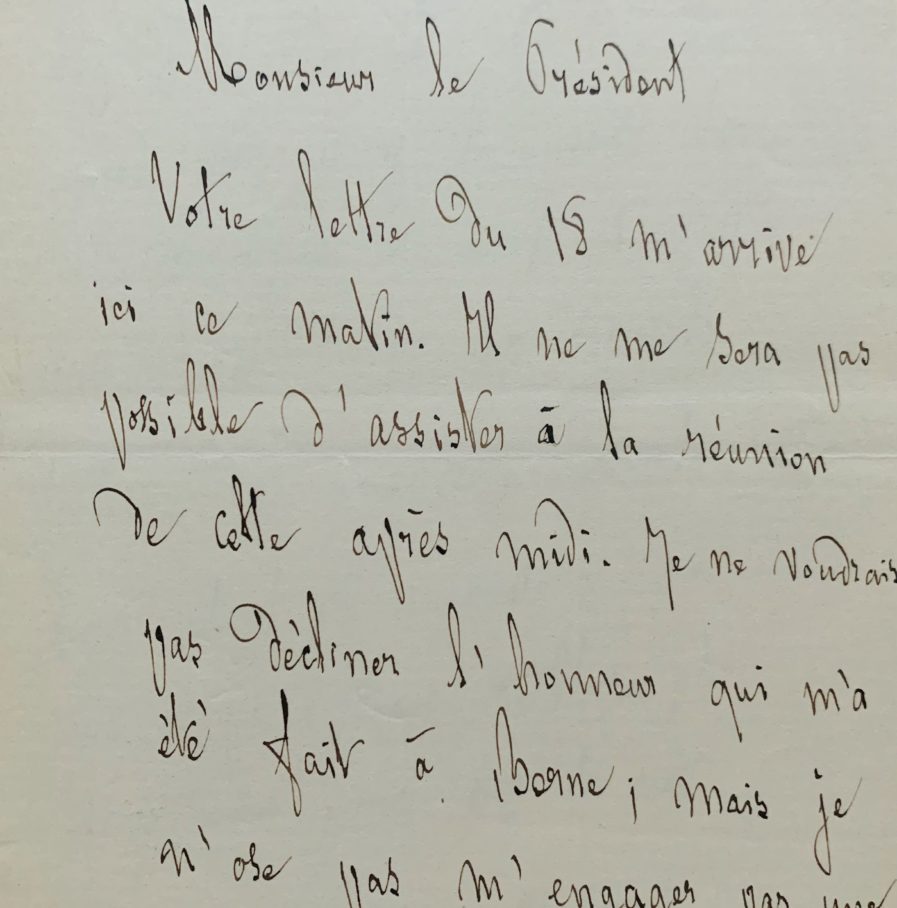 Monsieur le Président
Votre lettre du 18 m'arrive
ici ce matin. Il ne me sera pas
possible d'assister à la réunion
de cette après midi. Je ne voudrais
pas décliner l'honneur qui m'a
été fait à Berne ; mais je
n'ose pas m'engager par une